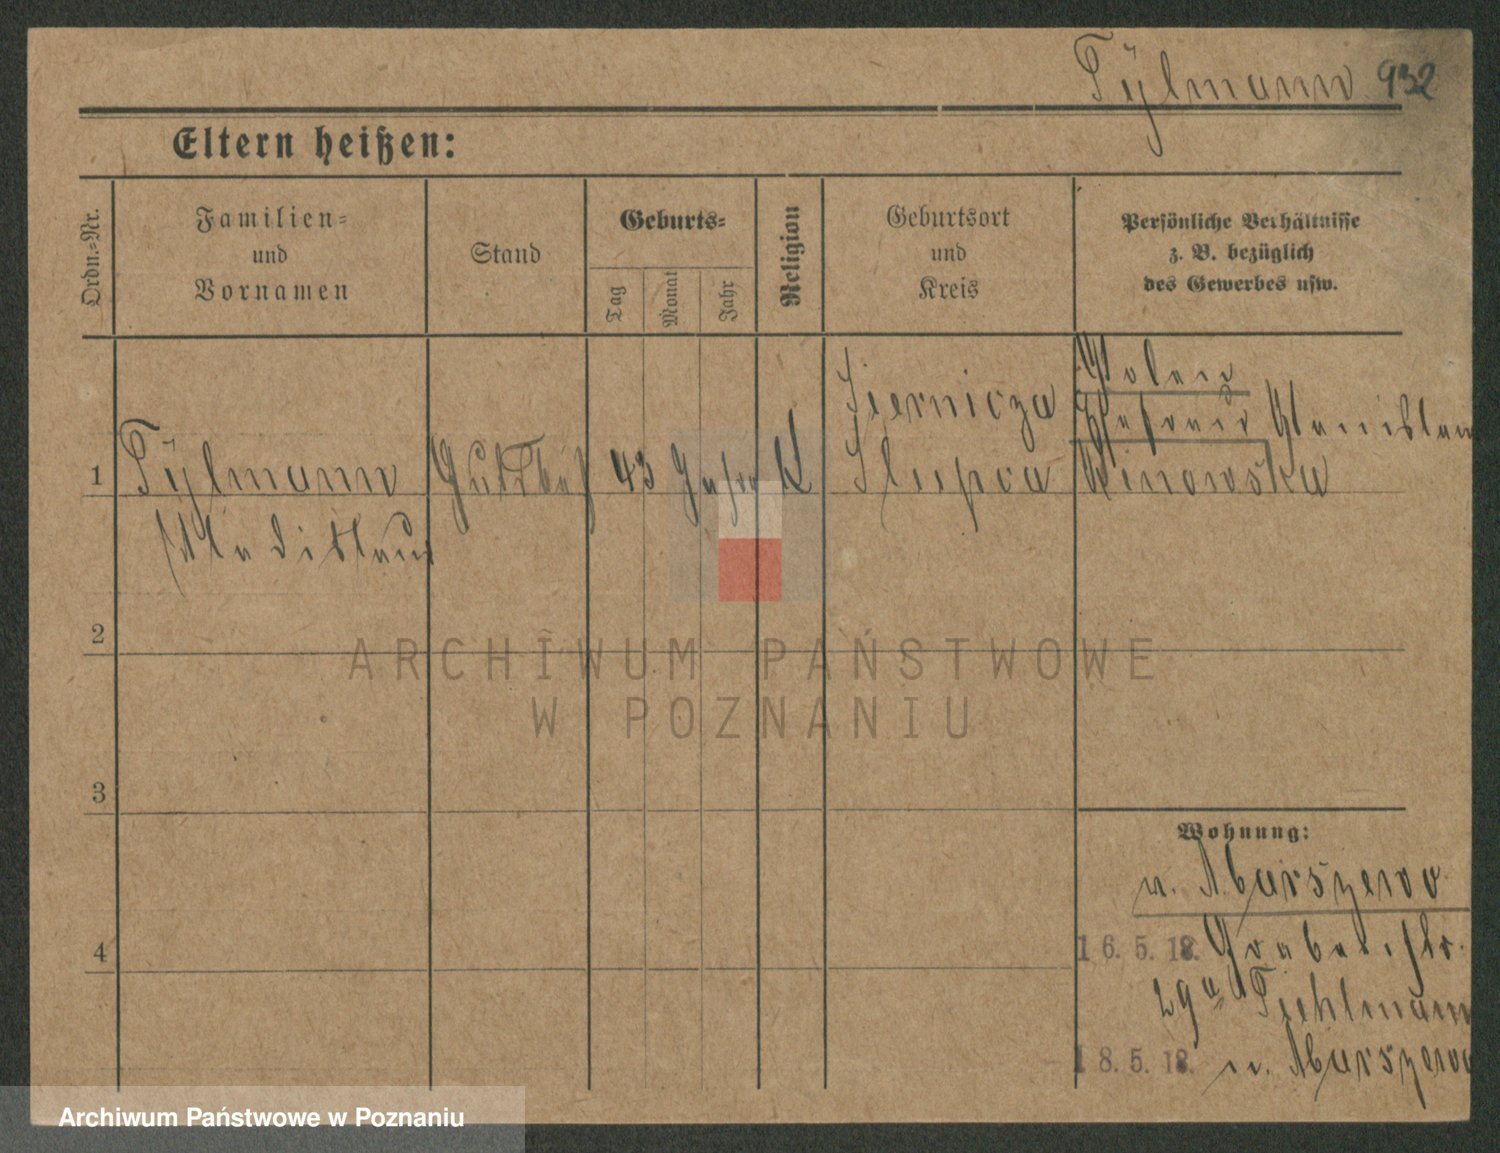 Tÿlmann 932
Eltern heißen:
Ordn.=Nr.
Familien=
und
Vornamen
Stand
Geburts=
Tag
Monat
Jahr
Religion
Geburtsort
und
Kreis
Persönliche Verhältnisse
z. B. bezüglich
des Gewerbes usw.
1
Tÿlmann
Wladislaus
43 Jahre
K
Slupca
Polen
Ehefrau Stanislawa
2
3
4
Wohnung:
n. Murszewo
16. 5. 18. Grabenstr.
29a Tiehlmann
18. 5. 18. n. Murszewo
ARCHIWUM PAŃSTWOWE
W POZNANIU
Archiwum Państwowe w Poznaniu